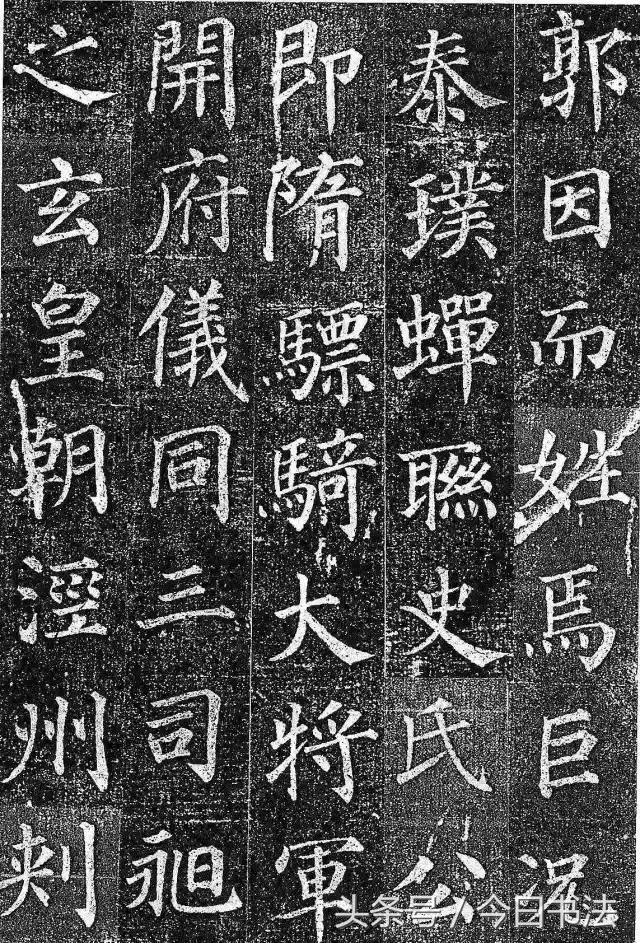 郭因而姓焉巨況
泰璞蟬聯史氏公
即隋驃騎大將軍
開府儀同三司昶
之玄皇朝涇州刺
头条号 / 今日书法